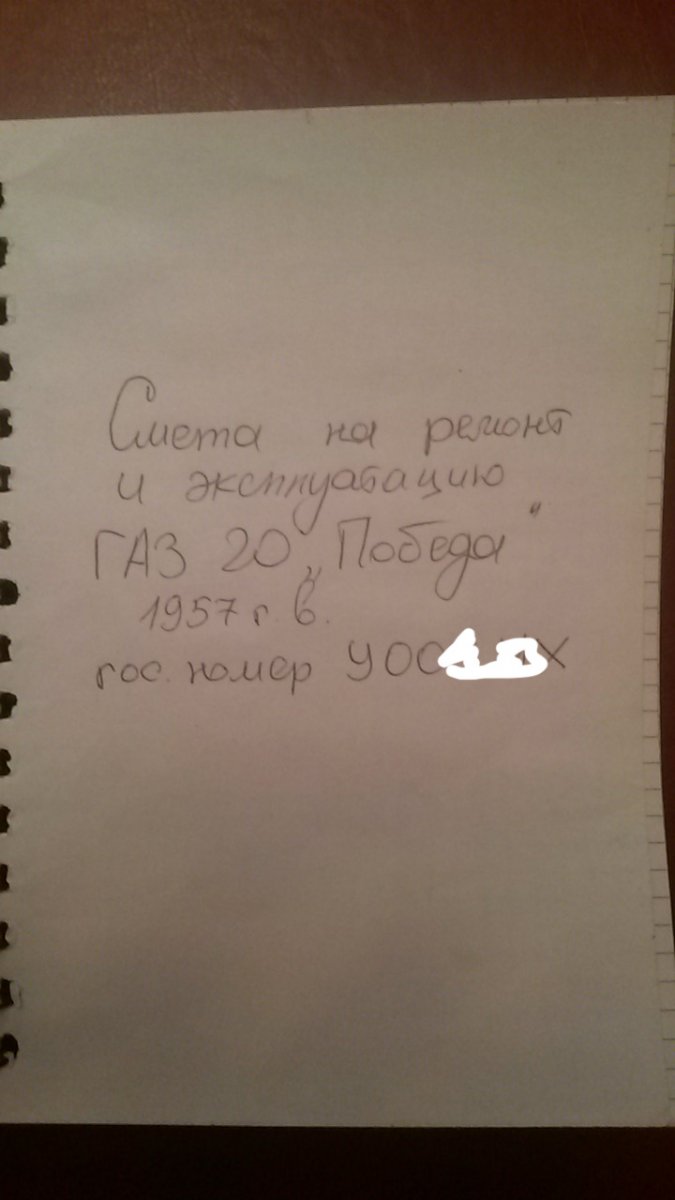 Смета на ремонт
и эксплуатацию
ГАЗ 20 „Победа"
1957 г. в.
гос. номер